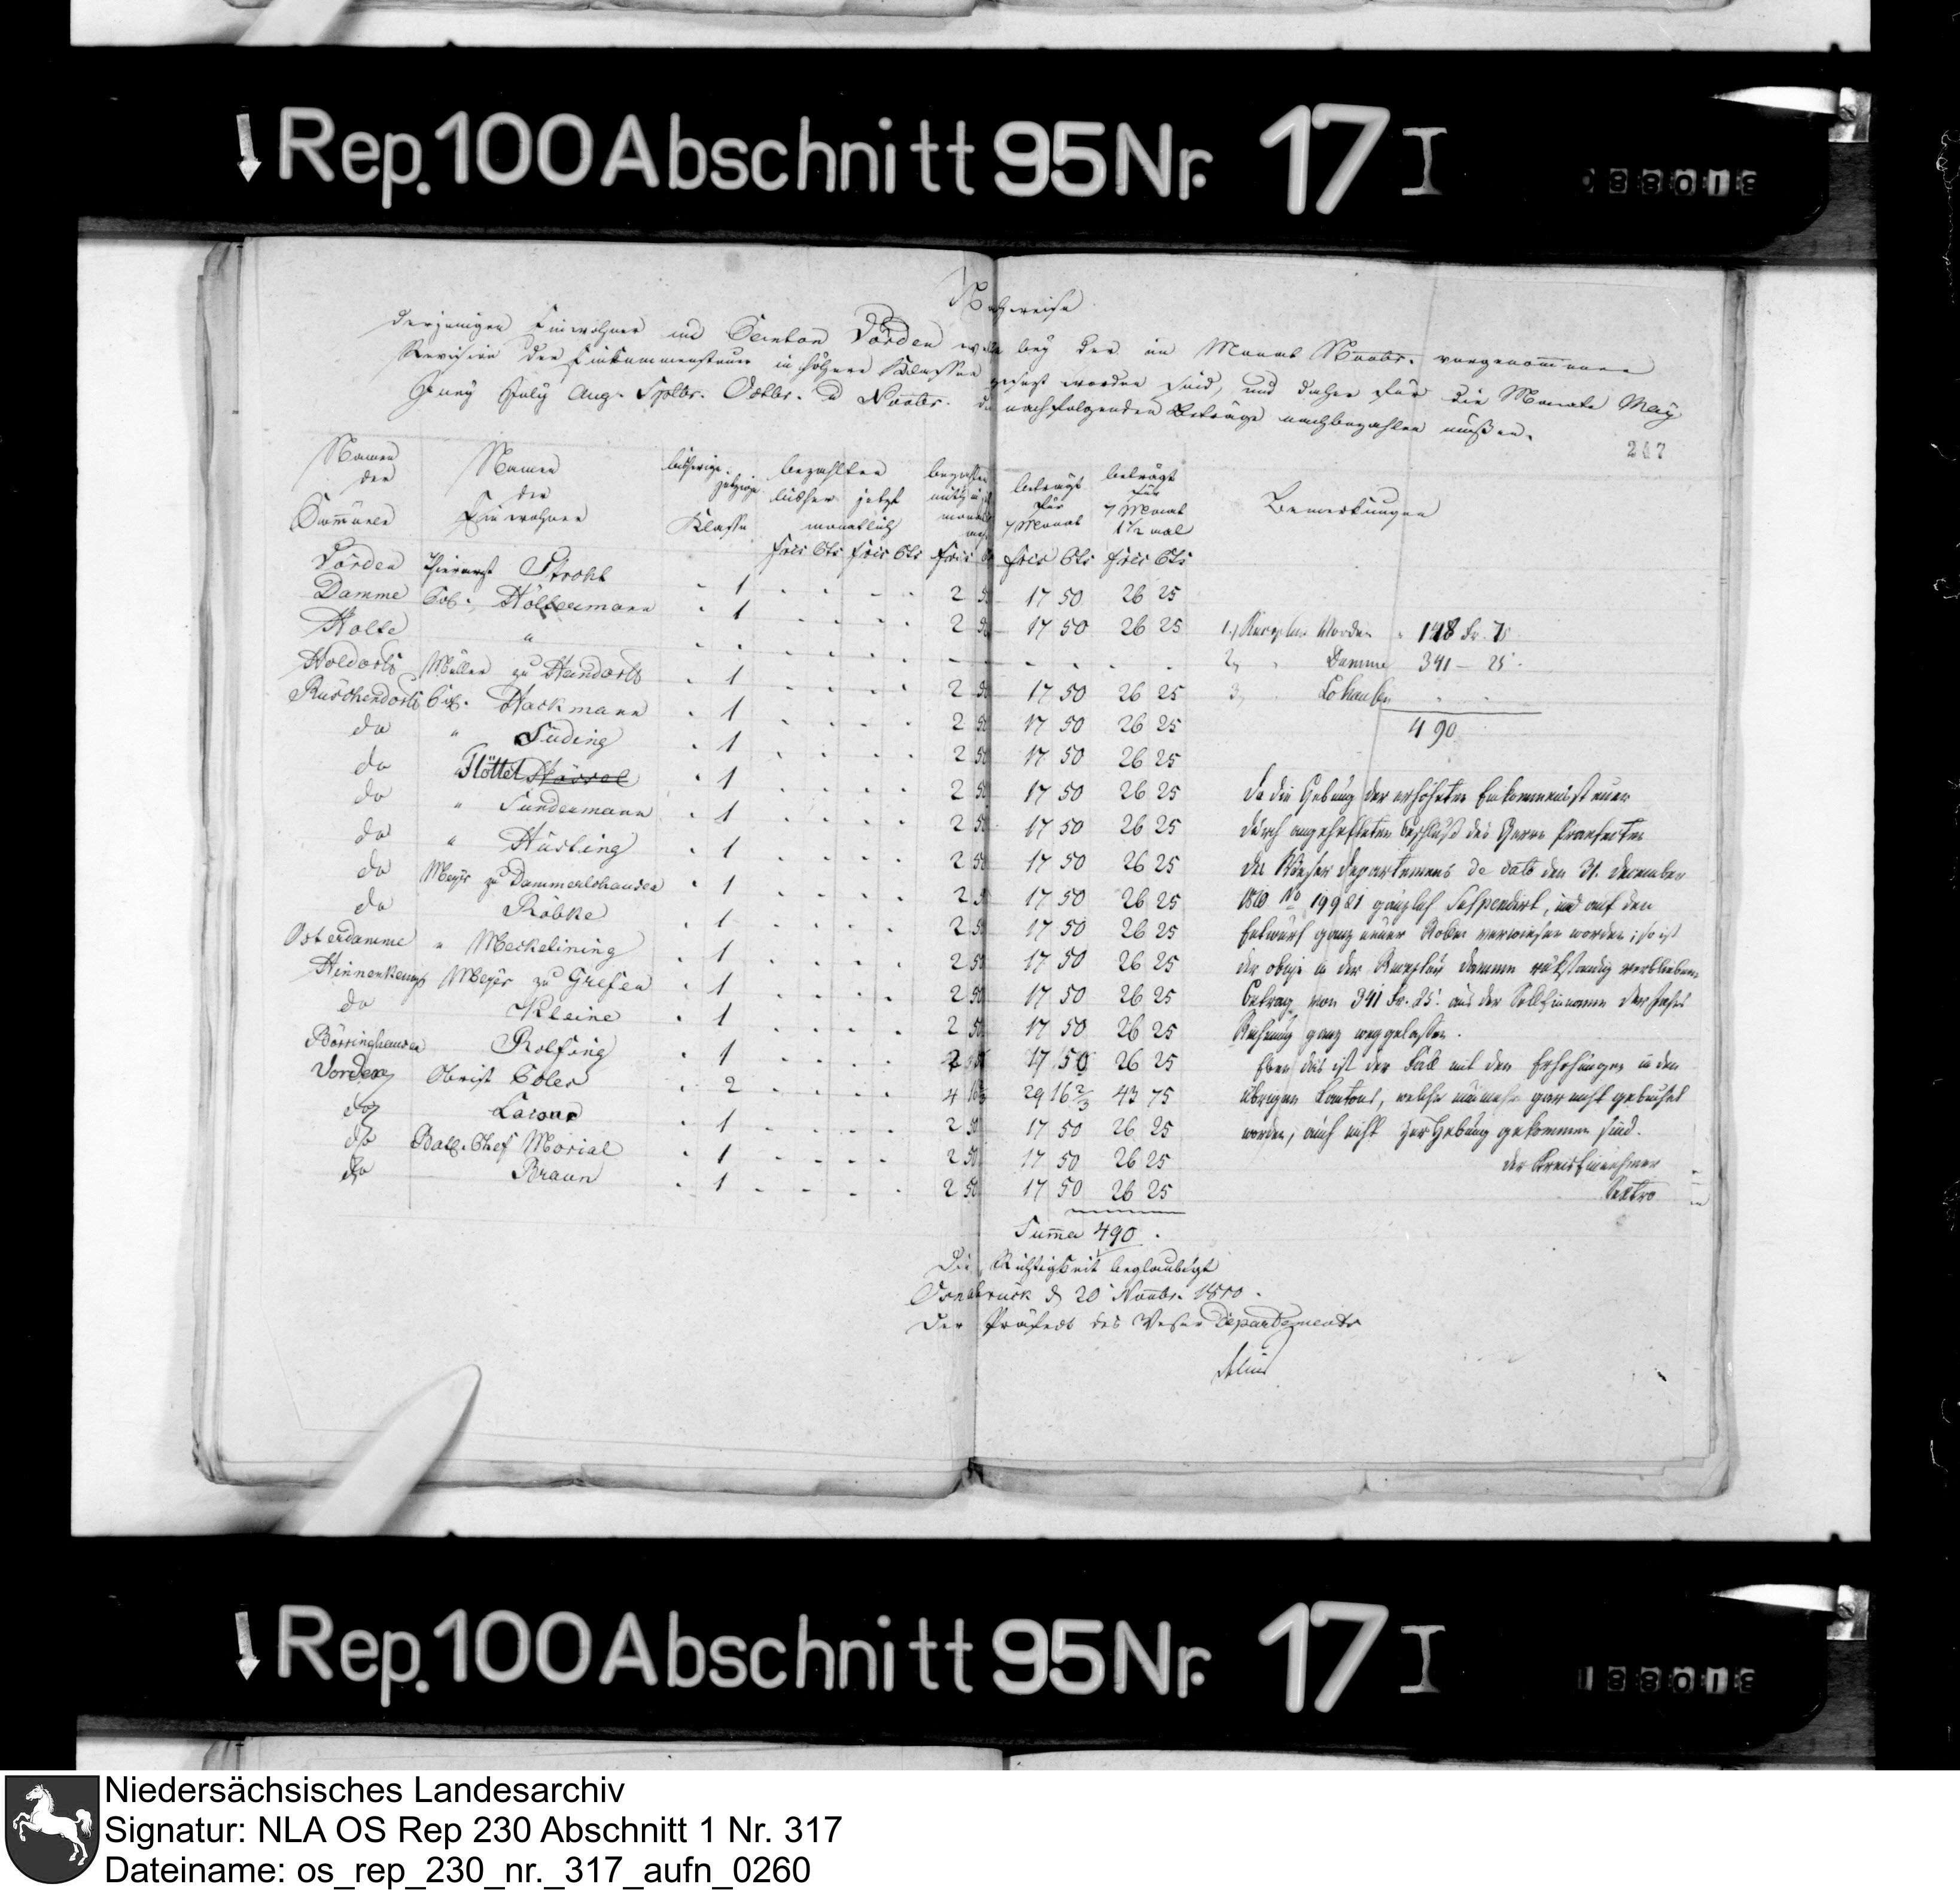 Rep. 100 Abschnitt 95 Nr. 17 I
Nachweise
derjenigen Einwohner im Canton Vörden welche bey der im Monat Novbr. vorgenommenen
Revision der Einkommensteuer in höhere Klassen gesezt worden sind, und daher für die Monate May
Juny July Aug. Sptbr. Octbr. u Novbr. die nachfolgenden Beträge nachbezahlen müßen.
247
Namen der Commünen
Namen der Einwohner
bisherige jetzige Klasse
bezahlten bisher jetzt monatlich
monatlich
beträgt für 7 Monat
beträgt für 7 Monat 1 1/2 mal
Bemerkungen
frcs Cts frcs Cts frcs frcs Cts frcs Cts
Vörden Thierarzt Strohl - 1 2 50 17 50 26 25
Damme Col. Höltermann - 1 2 50 17 50 26 25
Holte "
Holdorf Müller zu Handorf - 1 2 50 17 50 26 25
Rüschendorf Col. Hackmann - 1 2 50 17 50 26 25
do " Süding - 1 2 50 17 50 26 25
do " Flöttel - 1 2 50 17 50 26 25
do " Sundermann - 1 2 50 17 50 26 25
do " Hüsling - 1 2 50 17 50 26 25
do Meyer zu Dammerlohausen - 1 2 50 17 50 26 25
do Röbke - 1 2 50 17 50 26 25
Osterdamme " Meckelining - 1 2 50 17 50 26 25
Hinnenkamp Meyer zu Grefen - 1 2 50 17 50 26 25
do Kleine - 1 2 50 17 50 26 25
Börringhausen Rolfing - 1 2 50 17 50 26 25
Vörden Obrist - 2 4 16 2/3 29 16 2/3 43 75
do - 1 2 50 17 50 26 25
do Bat. Chef Morial - 1 2 50 17 50 26 25
do Braun - 1 2 50 17 50 26 25
Summa 490
1, Receptur Vörden 148 Fr. 75
2, " Damme 341 - 25
3, " Lohausen
490
Da die Hebung der erhöheten Einkommensteuer
durch angehefteten Beschluß des Herrn Praefecten
des Weser Departements de dato den 31. December
1810 No 19981 gänzlich suspendirt, und auf den
Entwurf ganz neuer Rollen verwiesen worden; so ist
der obige in der Receptur Damme rückständig verbliebene
Betrag von 341 Fr. 25 aus der Solleinnahme der
Rechnung ganz weggelassen.
Eben das ist der Fall mit den Erhöhungen in den
übrigen Cantons, welche gar nicht
worden, auch nicht zur Hebung gekommen sind.
der Kreis Einnehmer
Die Richtigkeit beglaubigt
Osnabrück d 20 Novbr. 1810.
Der Präfect des Weser Departements
Rep. 100 Abschnitt 95 Nr. 17 I
Niedersächsisches Landesarchiv
Signatur: NLA OS Rep 230 Abschnitt 1 Nr. 317
Dateiname: os_rep_230_nr._317_aufn_0260